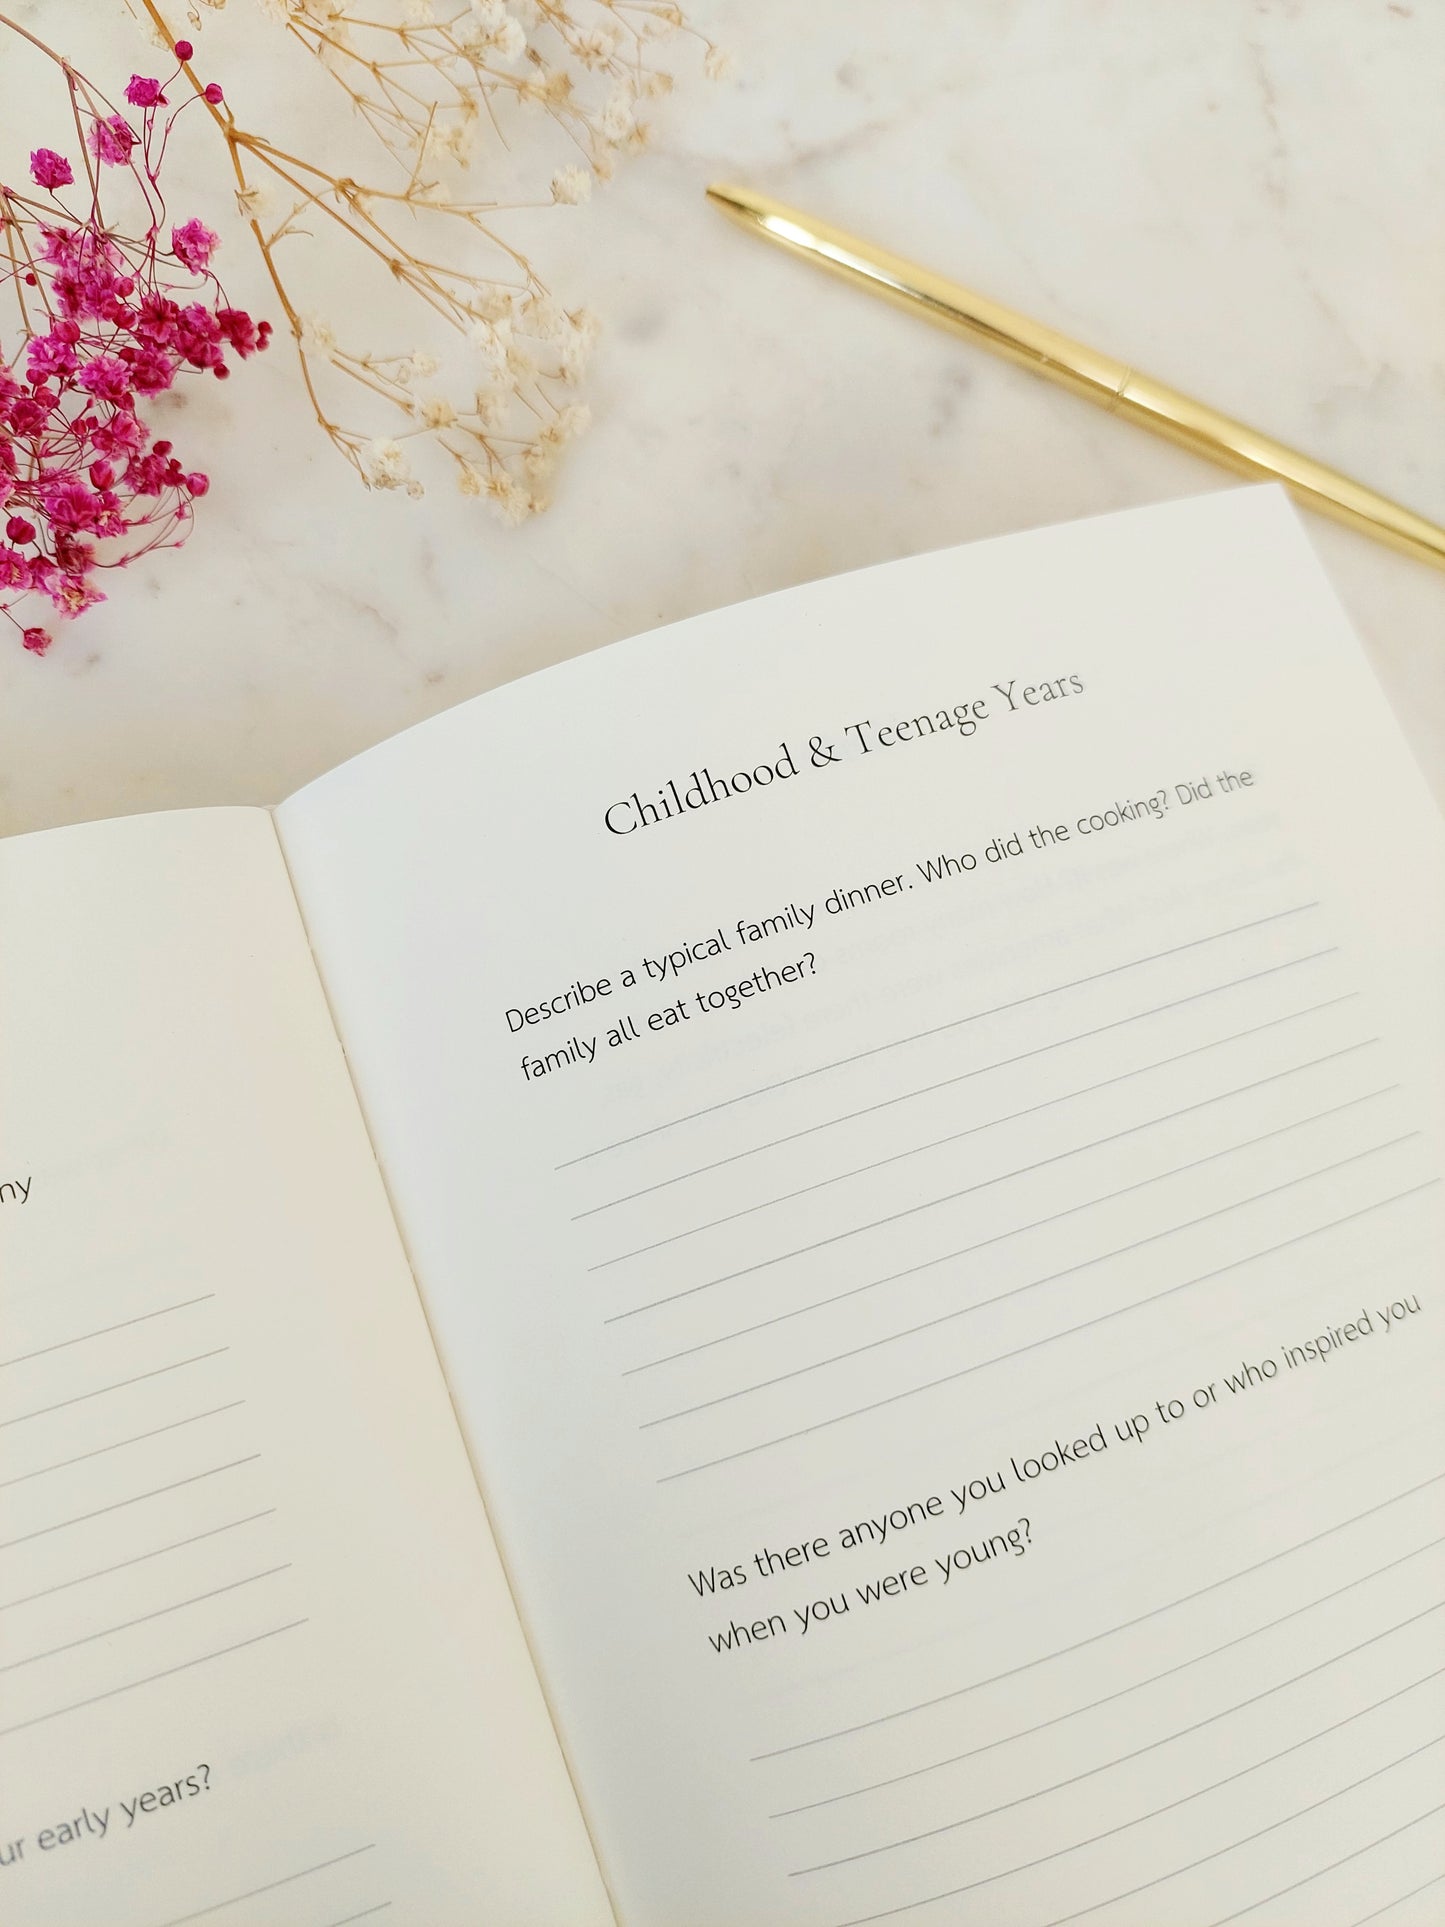 ny
early years?
Childhood & Teenage Years
Describe a typical family dinner. Who did the cooking? Did the
family all eat together?
Was there anyone you looked up to or who inspired you
when you were young?